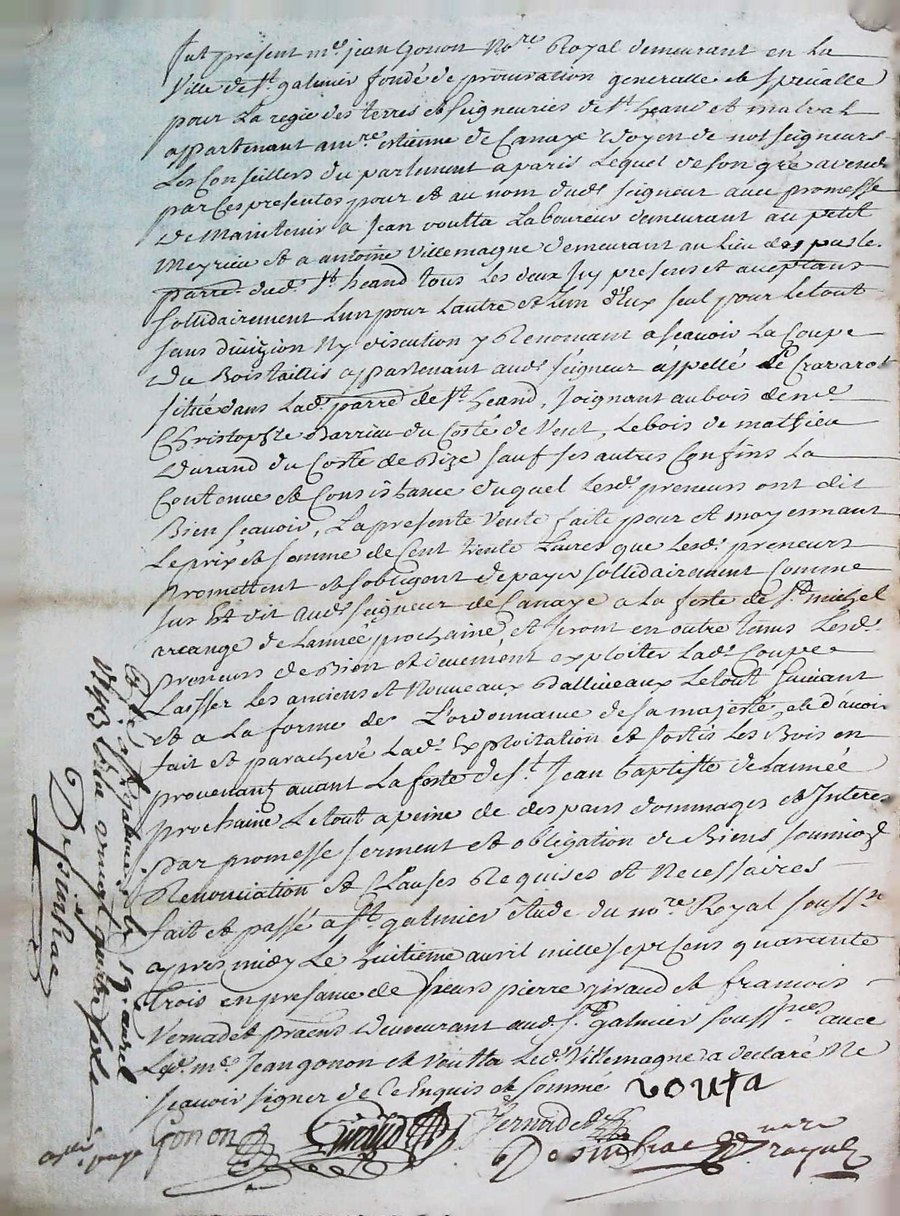 fut present me jean Gonon Nore Royal demeurant en La
Ville de St galmier fondé de procuration generalle et specialle
pour La regie des terres et seigneuries de St heand et malval
appartenant a mre estienne de Canaye doyen de nosseigneurs
Les Conseillers du parlement a paris Lequel de son gré a vendu
par Ces presentes pour et au nom dudt seigneur avec promesse
de Maintenir a Jean voutta Laboureur demeurant au petit
Meyrieu et a antoine Villemagne demeurant au Lieu de
parre. dudt St heand tous Les deux Icy presens et acceptans
sollidairement Lun pour Lautre et Lun d'Eux seul pour Letout
sans division Ny discution y Renonçant a scavoir La Coupe
du Bois taillis appartenant audt seigneur appellé Le Cravarot
située dans Ladt parre de St heand, Joignant au bois de me
Christophle Barrieu du Costé de Vent, Le bois de mathieu
Durand du Costé de Bize sauf ses autres Confins La
Contenue et Consistance duquel Lesdt preneurs ont dit
Bien scavoir, La presente Vente faite pour et moyennant
Le prix et somme de Cent trente Livres que Lesdt preneurs
promettent et sobligent de payer sollidairement Comme
sus Est dit audt seigneur de Canaye a La feste de St michel
arcange de Lannée prochaine, et seront en outre tenus Lesdt
preneurs de Bien et deuement exploiter Ladt Coupe
Laisser Les anciens et Nouveaux Balliveaux Letout suivant
et a La forme de L'ordonnance de sa majesté, et d'avoir
fait et parachevé Ladt Exploitation et sortis Les Bois en
provenant avant La feste de St Jean baptiste de Lannée
prochaine Letout a peine de despans dommages et Interes
par promesse serment et obligation de Biens soumiod
Renonciation et Clauses Requises et Necessaires
fait et passé a St galmier Etude du nore Royal soussre
apres midy Le huitieme avril mille sept Cens quarante
trois en presance de sieurs pierre giraud et francois
Vernadet praens demeurant audt St galmier soussrnes avec
Ledt me Jean gonon et voutta Ledt Villemagne a declaré Ne
scavoir signer de Ce Enquis et sommé
vouta
Gonon Giraud Vernadet
Desinhac nore royal
Cé a St galmier Le 19e avril
1743 Reçu vingt quatre sols
Desinhac